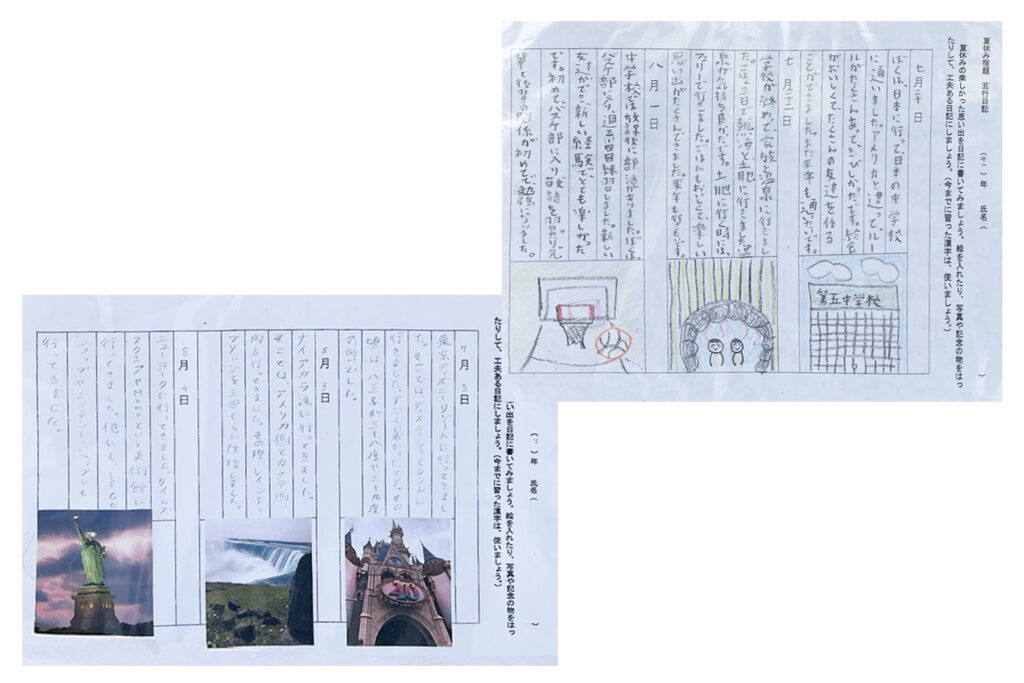 夏休み宿題　五行日記　(中一)年　氏名(　)
夏休みの楽しかった思い出を日記に書いてみましょう。絵を入れたり、写真や記念の物をはっ
たりして、工夫ある日記にしましょう。(今までに習った漢字は、使いましょう。)
七月二十日
ぼくは、日本に行って、日本の中学校
に通いました。アメリカと違って、ルー
ルがたくさんあって、きびしかったです。給食
がおいしくて、たくさんの友達を作る
ことができました。また来年も通いたいです。
第五中学校
七月二十一日
学校が終わって、家族と温泉に行きまし
た。二泊三日で熱海と土肥に行きました。温
泉が気持ち良かったです。土肥に行く時には、
フェリーで行きました。ごはんもおいしくて、楽しい
思い出がたくさんできました。来年も行きたいです。
八月一日
中学校では放課後に部活がありました。ぼくは、
バスケ部に入り、週三、四回練習しました。新しい
友達ができ、新しい経験ができとても楽しかった
です。初めて、バスケ部に入り敬語を習ったり、先
輩と後輩の関係が初めてで勉強になりました。
(7)年　氏名(　)
い出を日記に書いてみましょう。絵を入れたり、写真や記念の物をはっ
たりして、工夫ある日記にしましょう。(今までに習った漢字は、使いましょう。)
7月5日
東京ディズニーリゾートに行ってきまし
た。そこではディズニーシーとランドに
行きました。すごく暑かったです。その
頃は八王子が三十八度や三十九度
の時でした。
8月3日
ナイアガラ滝に行ってきました。
そこではアメリカ側とカナダ側、
両方行ってきました。その際レインボー
ブリッジを三回くらい往復しました。
8月4日
ニューヨークに行ってきました。タイムズ
スクエアやMomaという美術館に
行ってきました。他にも、LEGO
ショップやニンテンドーショップにも
行ってきました。